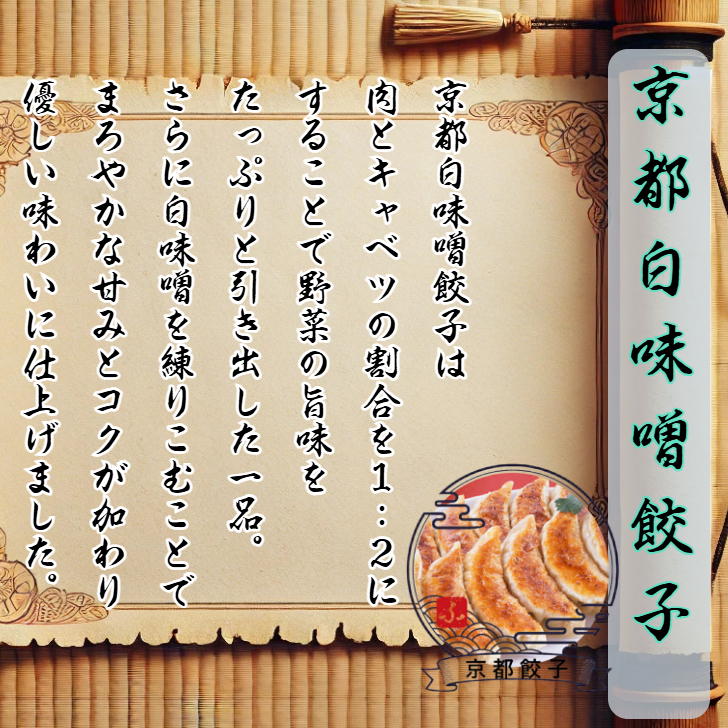 京都白味噌餃子
京都白味噌餃子は
肉とキャベツの割合を1:2に
することで野菜の旨味を
たっぷりと引き出した一品。
さらに白味噌を練りこむことで
まろやかな甘みとコクが加わり
優しい味わいに仕上げました。
ふ
京都餃子